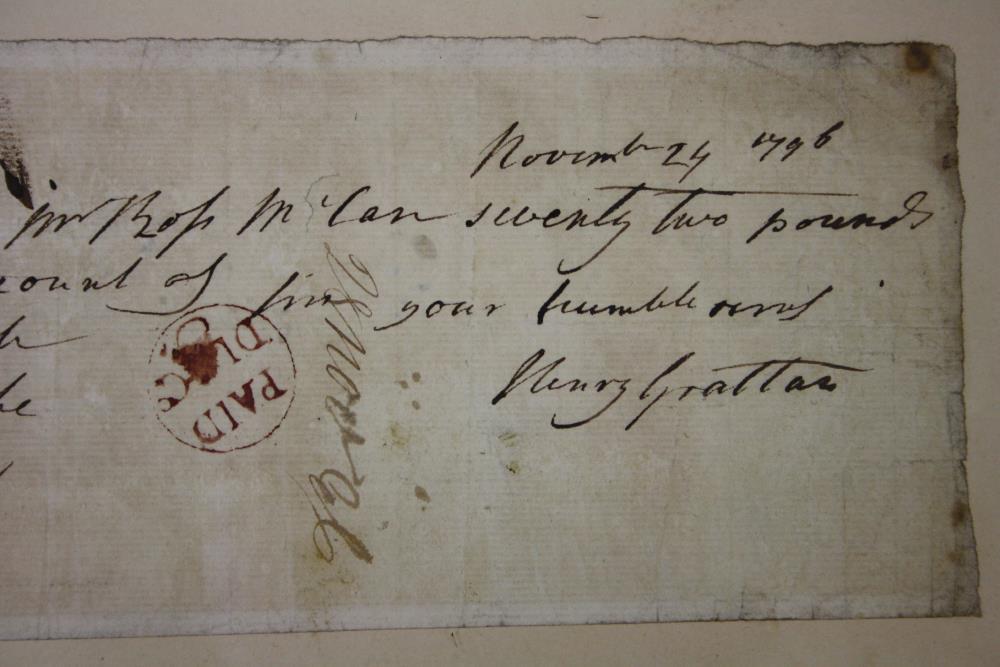 Novembr 24 1796
Mr Ross McCan seventy two pounds
count of Sir your humble servt
Henry Grattan
PAID